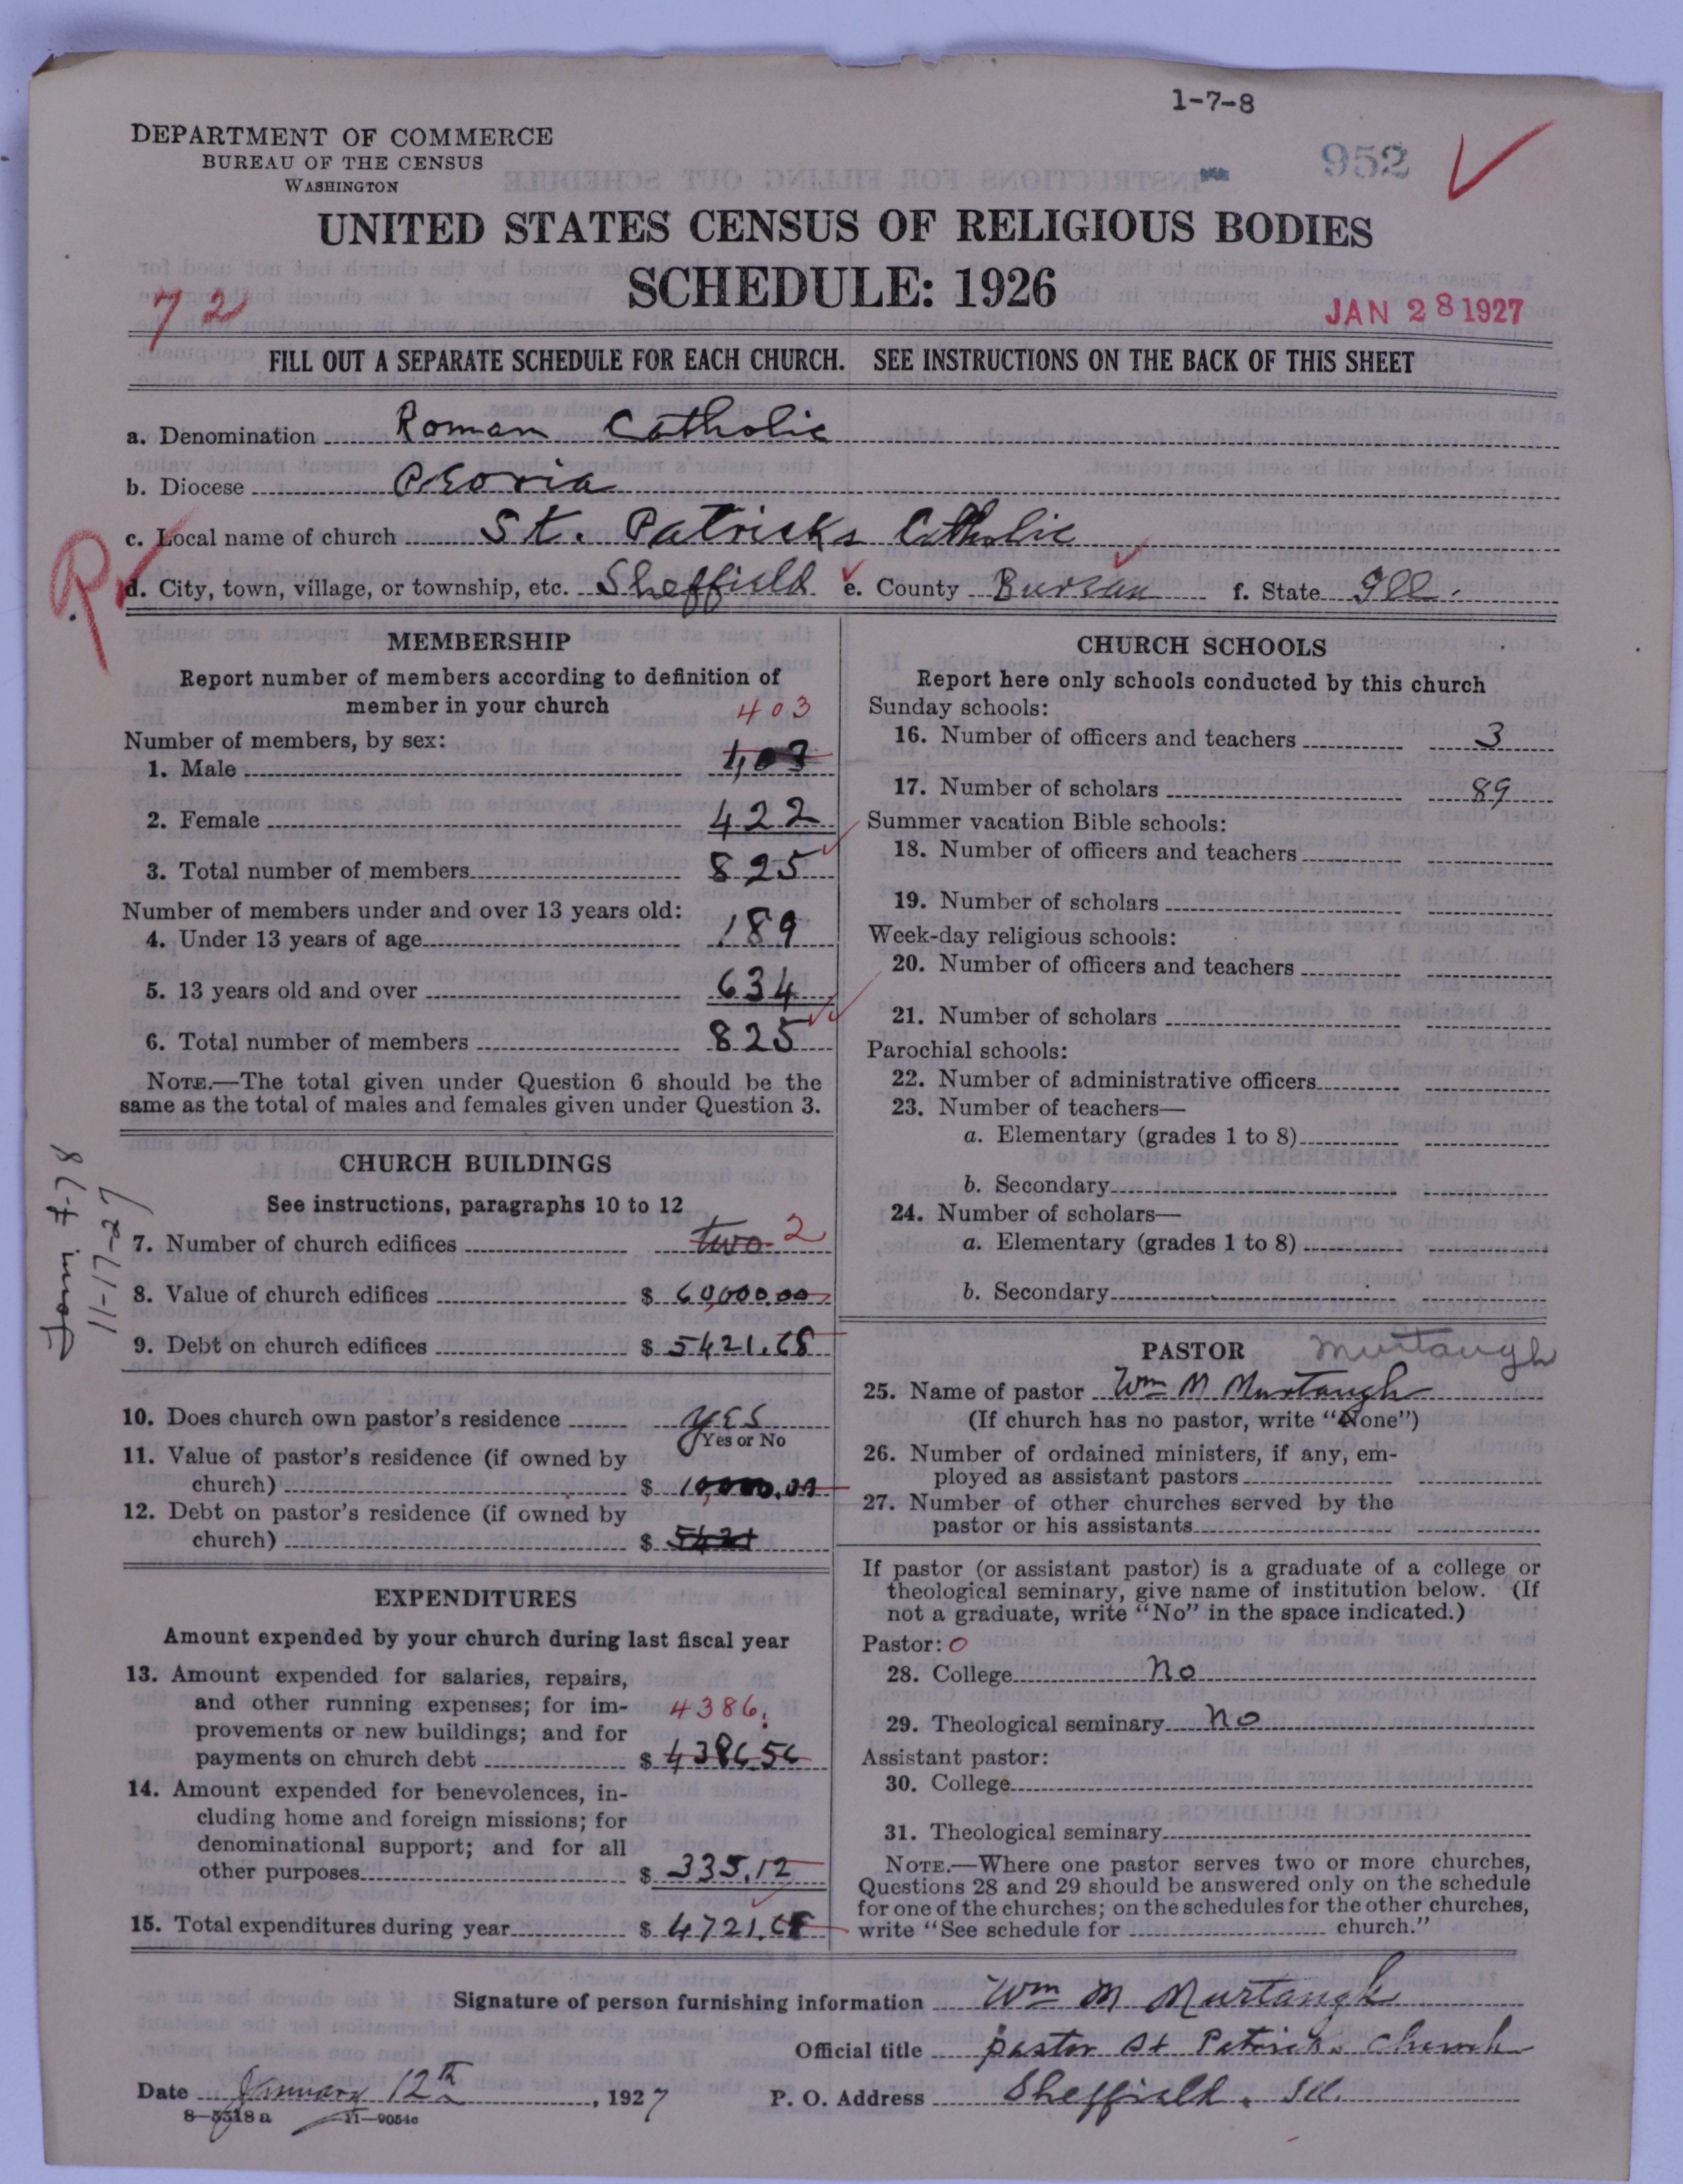 1-7-8
DEPARTMENT OF COMMERCE
BUREAU OF THE CENSUS
WASHINGTON
952
UNITED STATES CENSUS OF RELIGIOUS BODIES
SCHEDULE: 1926
72
JAN 28 1927
FILL OUT A SEPARATE SCHEDULE FOR EACH CHURCH. SEE INSTRUCTIONS ON THE BACK OF THIS SHEET
a. Denomination Roman Catholic
b. Diocese Peoria
c. Local name of church St. Patricks Catholic
d. City, town, village, or township, etc. Sheffield e. County Bureau f. State Ill.
R
MEMBERSHIP
Report number of members according to definition of
member in your church
403
Number of members, by sex:
1. Male
2. Female 422
3. Total number of members 825
Number of members under and over 13 years old:
4. Under 13 years of age 189
5. 13 years old and over 634
6. Total number of members 825
NOTE.—The total given under Question 6 should be the
same as the total of males and females given under Question 3.
CHURCH BUILDINGS
See instructions, paragraphs 10 to 12
7. Number of church edifices two 2
8. Value of church edifices $ 60,000.00
9. Debt on church edifices $ 5421.68
10. Does church own pastor's residence yes
Yes or No
11. Value of pastor's residence (if owned by
church) $ 10,000.00
12. Debt on pastor's residence (if owned by
church) $ 5421
11-17-27
EXPENDITURES
Amount expended by your church during last fiscal year
13. Amount expended for salaries, repairs,
and other running expenses; for im-
provements or new buildings; and for
4386.
payments on church debt $ 4386 56
14. Amount expended for benevolences, in-
cluding home and foreign missions; for
denominational support; and for all
other purposes $ 335.12
15. Total expenditures during year $ 4721.68
CHURCH SCHOOLS
Report here only schools conducted by this church
Sunday schools:
16. Number of officers and teachers 3
17. Number of scholars 89
Summer vacation Bible schools:
18. Number of officers and teachers
19. Number of scholars
Week-day religious schools:
20. Number of officers and teachers
21. Number of scholars
Parochial schools:
22. Number of administrative officers
23. Number of teachers—
a. Elementary (grades 1 to 8)
b. Secondary
24. Number of scholars—
a. Elementary (grades 1 to 8)
b. Secondary
PASTOR Murtaugh
25. Name of pastor Wm M Murtaugh
(If church has no pastor, write "None")
26. Number of ordained ministers, if any, em-
ployed as assistant pastors
27. Number of other churches served by the
pastor or his assistants
If pastor (or assistant pastor) is a graduate of a college or
theological seminary, give name of institution below. (If
not a graduate, write "No" in the space indicated.)
Pastor: 0
28. College No
29. Theological seminary No
Assistant pastor:
30. College
31. Theological seminary
NOTE.—Where one pastor serves two or more churches,
Questions 28 and 29 should be answered only on the schedule
for one of the churches; on the schedules for the other churches,
write "See schedule for church."
Signature of person furnishing information Wm M Murtaugh
Official title pastor St Patricks Church
Date January 12th, 1927 P. O. Address Sheffield. Ill.
8-5518 a 11-9054c